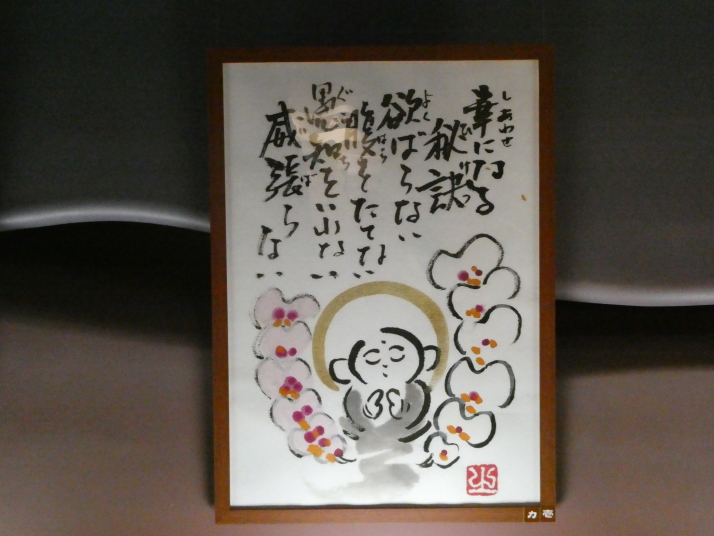 幸になる
しあわせ
秘訣
ひけつ
欲ばらない
よく
腹をたてない
はら
愚知をいわない
ぐち
威張らない
いば
カ 壱